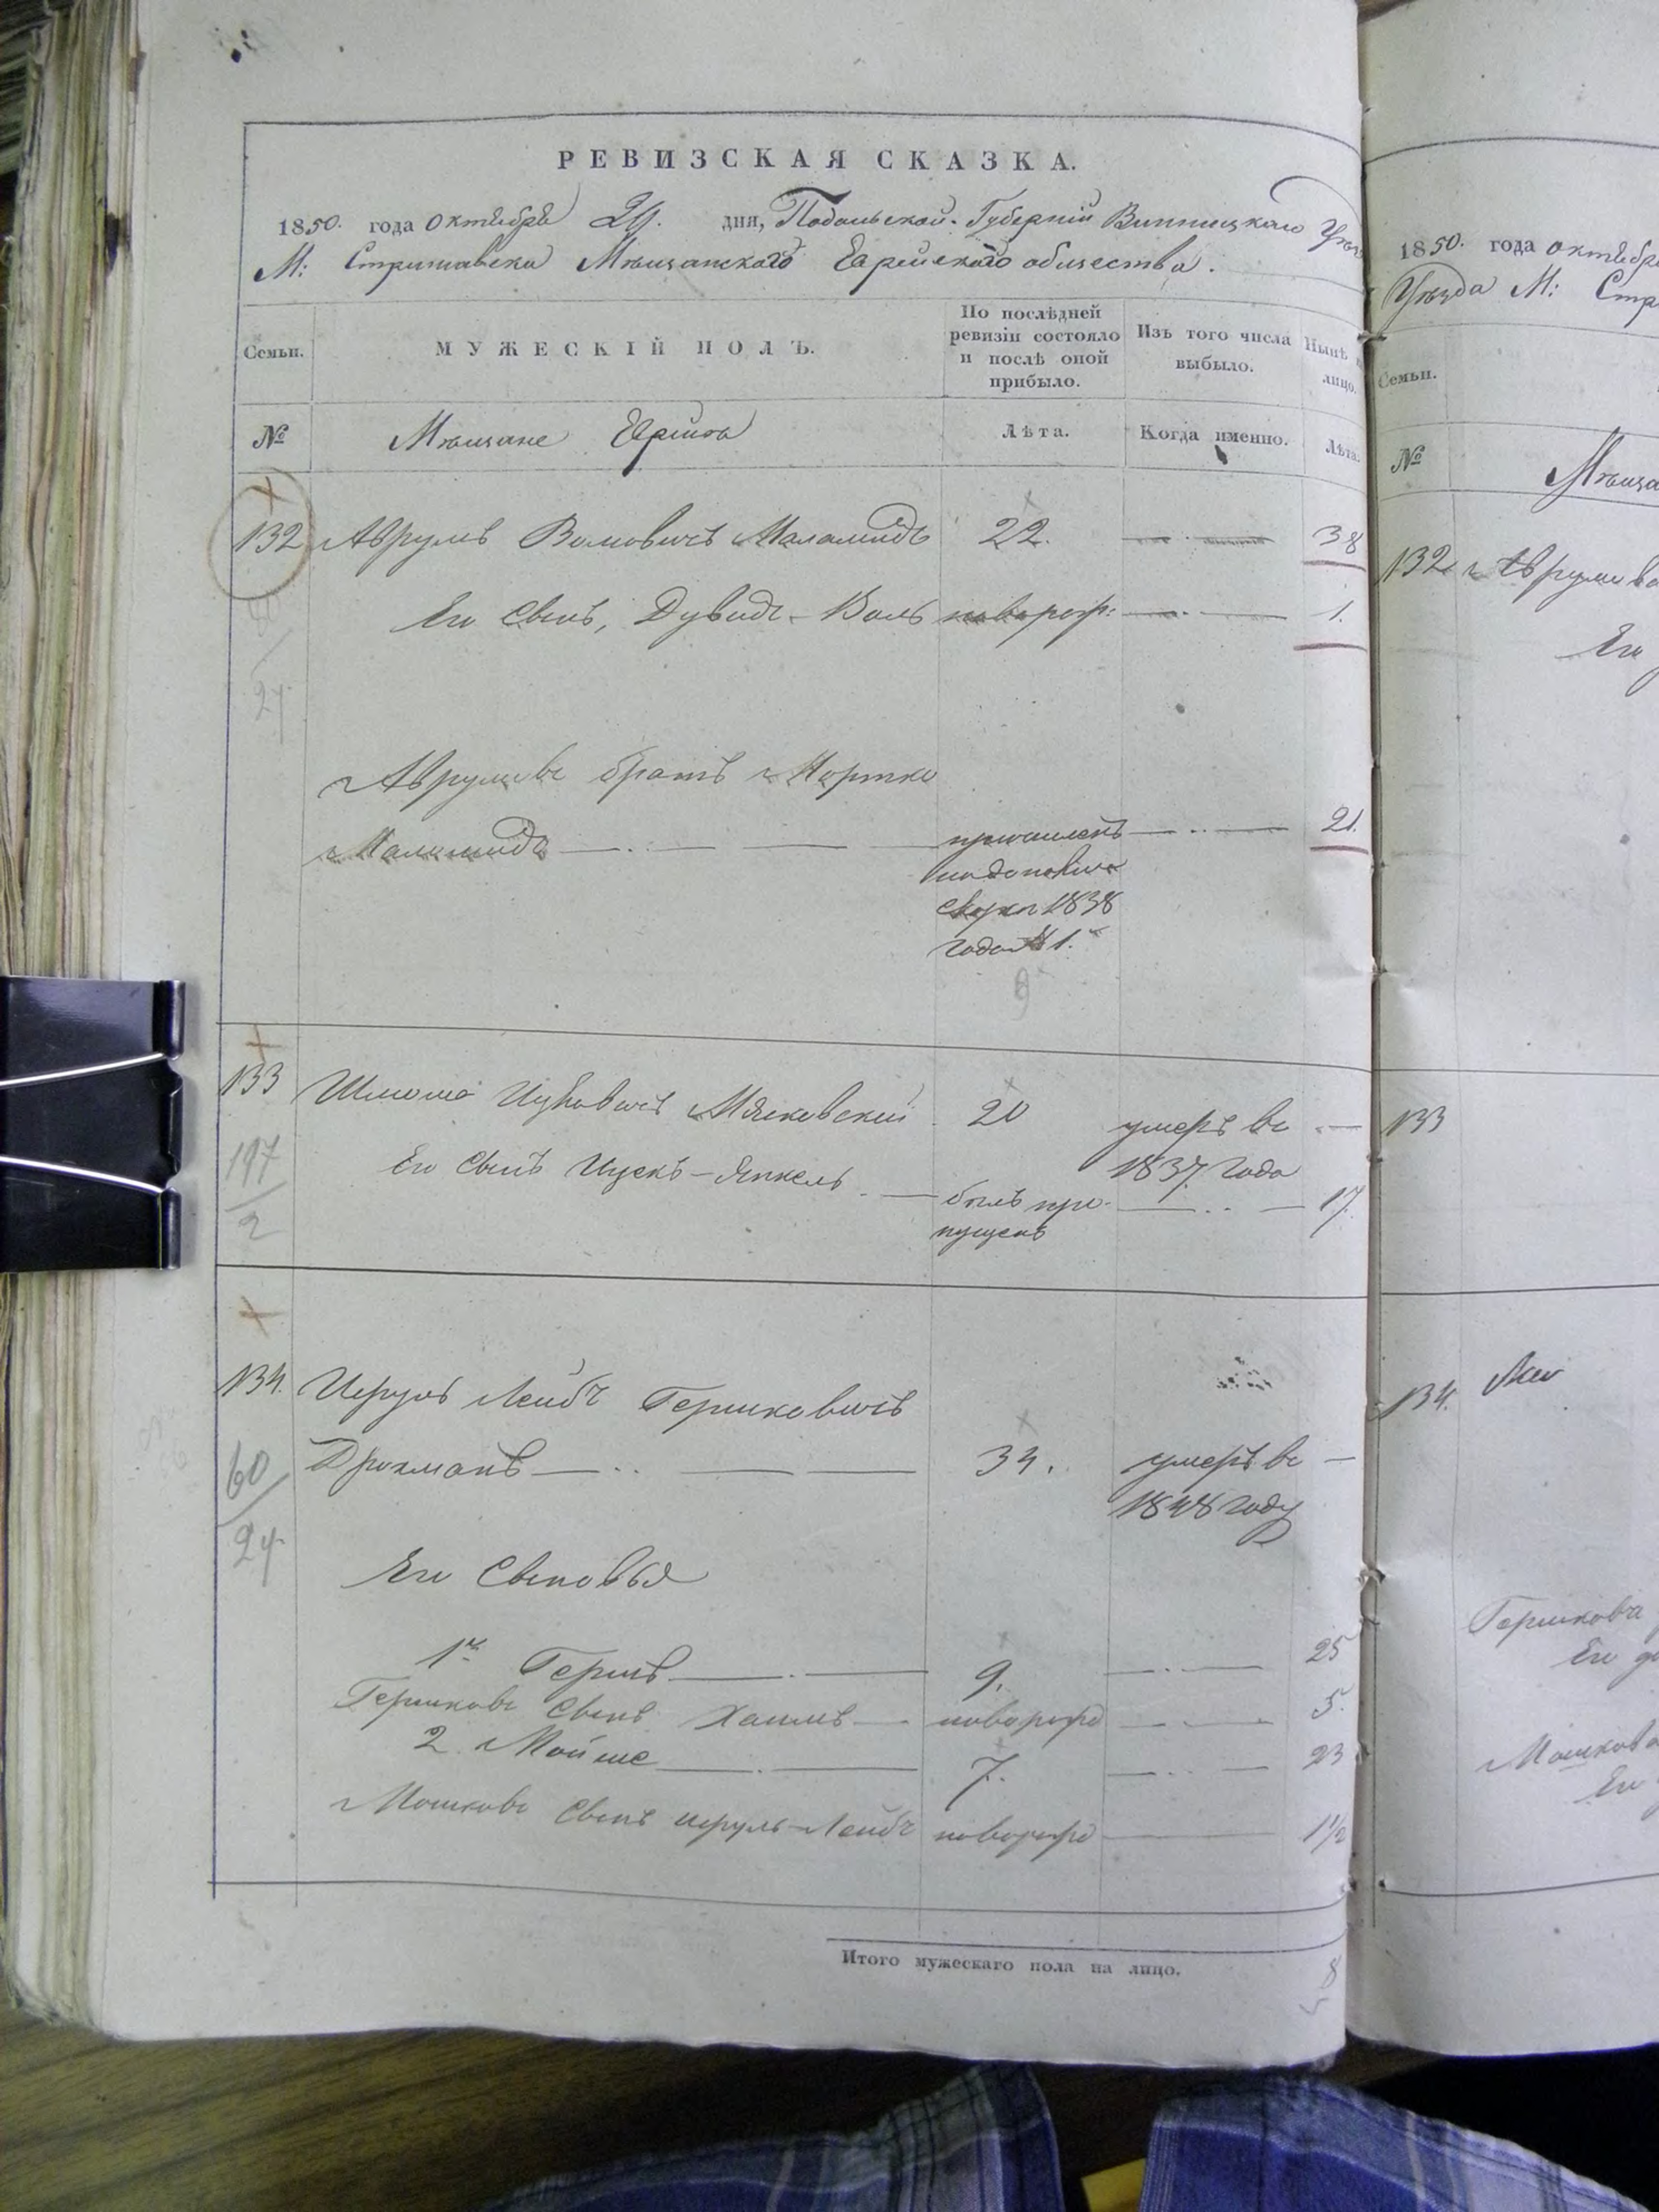 РЕВИЗСКАЯ СКАЗКА.
1850. года октября 29. дня, Подольской Губернии Винницкаго Уезда
М: Стрижавки Мѣщанскаго Еврейскаго общества.
Семьи.
МУЖЕСКІЙ ПОЛЪ.
По послѣдней ревизіи состояло и послѣ оной прибыло.
Изъ того числа выбыло.
Нынѣ на лицо.
№ Мѣщане Евреи Лѣта. Когда именно. Лѣта.
132 Аврумъ Волковичъ Маламудъ 22. 38
Его сынъ, Дувидъ-Волъ новорож: 1.
24
Аврумовъ братъ Мортко
Маламудъ причисленъ 21.
1838
года № 1.
133 Шлиома Ицковичъ Мясковскій 20 умеръ въ
1837 года
Его сынъ Ицекъ-Янкель былъ про- 17.
пущенъ
197
2
134. Исруль Лейбъ Гершковичъ
Дрохманъ 34. умеръ въ
1848 году
60
24
Его Сыновья
1й Гершъ 9. 25
Гершковъ сынъ Хаимъ новорожд 5.
2 Мойше 7. 23
Мошковъ сынъ Исруль-Лейбъ новорожд 1½
Итого мужескаго пола на лицо. 8
1850. года октября
Уѣзда М:
Семьи.
№
132 Аврумова
Его
133
134.
Гершкова
Его
Мошкова
Его